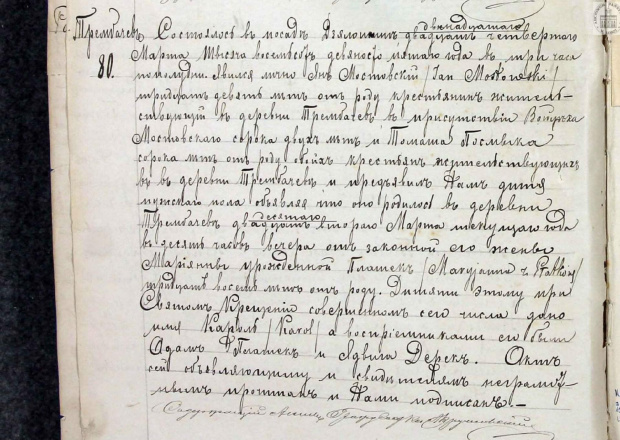 Трембачевъ
80.
Состоялось в посадѣ Дзялошинѣ двенадцатаго двадцать четвертаго
Марта тысяча восемьсотъ девяносто пятаго года в три часа
по полудни. Явился лично Янъ Мостовский /Jan Mostowski/
тридцати девяти лѣтъ отъ роду крестьянинъ житель-
ствующий въ деревни Трембачевъ в присутствіи Войцѣха
Мостовскаго сорока двухъ лѣтъ и Томаша
сорока лѣтъ отъ роду обоихъ крестьянъ жительствующихъ
въ в деревни Трембачевъ и предъявилъ Намъ дитя
мужскаго пола объявляя что оно родилось въ деревни
Трембачевъ десятаго двадцать втораго Марта текущаго года
въ десять часовъ вечера отъ законной его жены
Маріянны урожденной Платекъ /Maryjanna z Płatków/
тридцать восемь лѣтъ отъ роду. Дитяти этому при
Святомъ Крещеніи совершенномъ сего числа дано
имя Кароль /Karol/ а воспріемниками его были
Адамъ Платекъ и Ядвига Дерекъ. Актъ
сей объявляющему и свидѣтелямъ неграмот-
нымъ прочтанъ и Нами подписанъ.